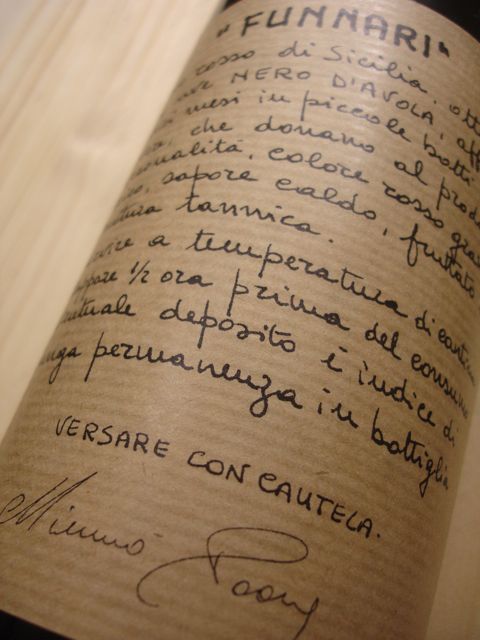 "FUNNARI"
rosso di Sicilia, ott
NERO D'AVOLA, aff
mesi in piccole botti
che donano al prod
colore rosso gra
sapore caldo, fruttato
tannica.
a temperatura di cantin
1/2 ora prima del consumo
deposito è indice di
permanenza in bottiglia
VERSARE CON CAUTELA.
Mimmo Paone